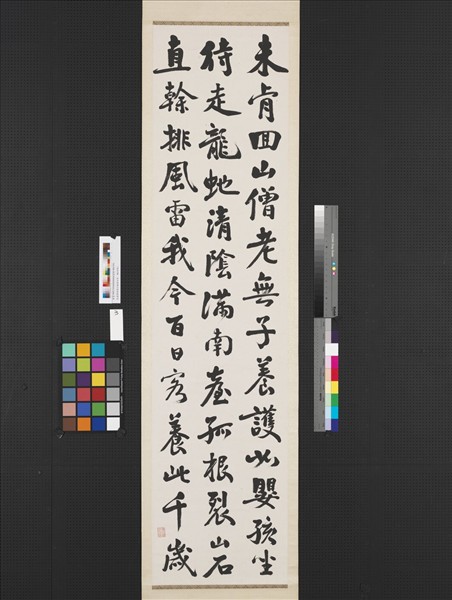 未肯回山僧老無子養護如嬰孩坐
待走龍虵清陰滿南臺孤根裂山石
直榦排風雷我今百日客養此千歲